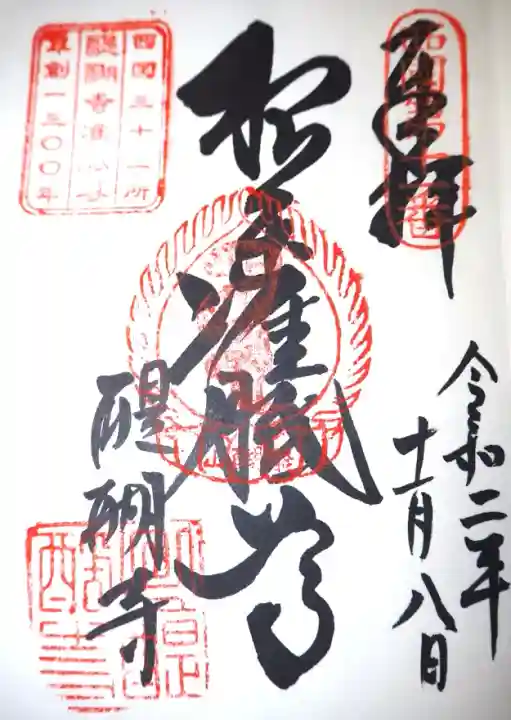 奉拝
西国第十一番
令和二年
十一月八日
准胝尊
醍醐寺
西国三十三所
醍醐寺准胝堂
草創一三〇〇年